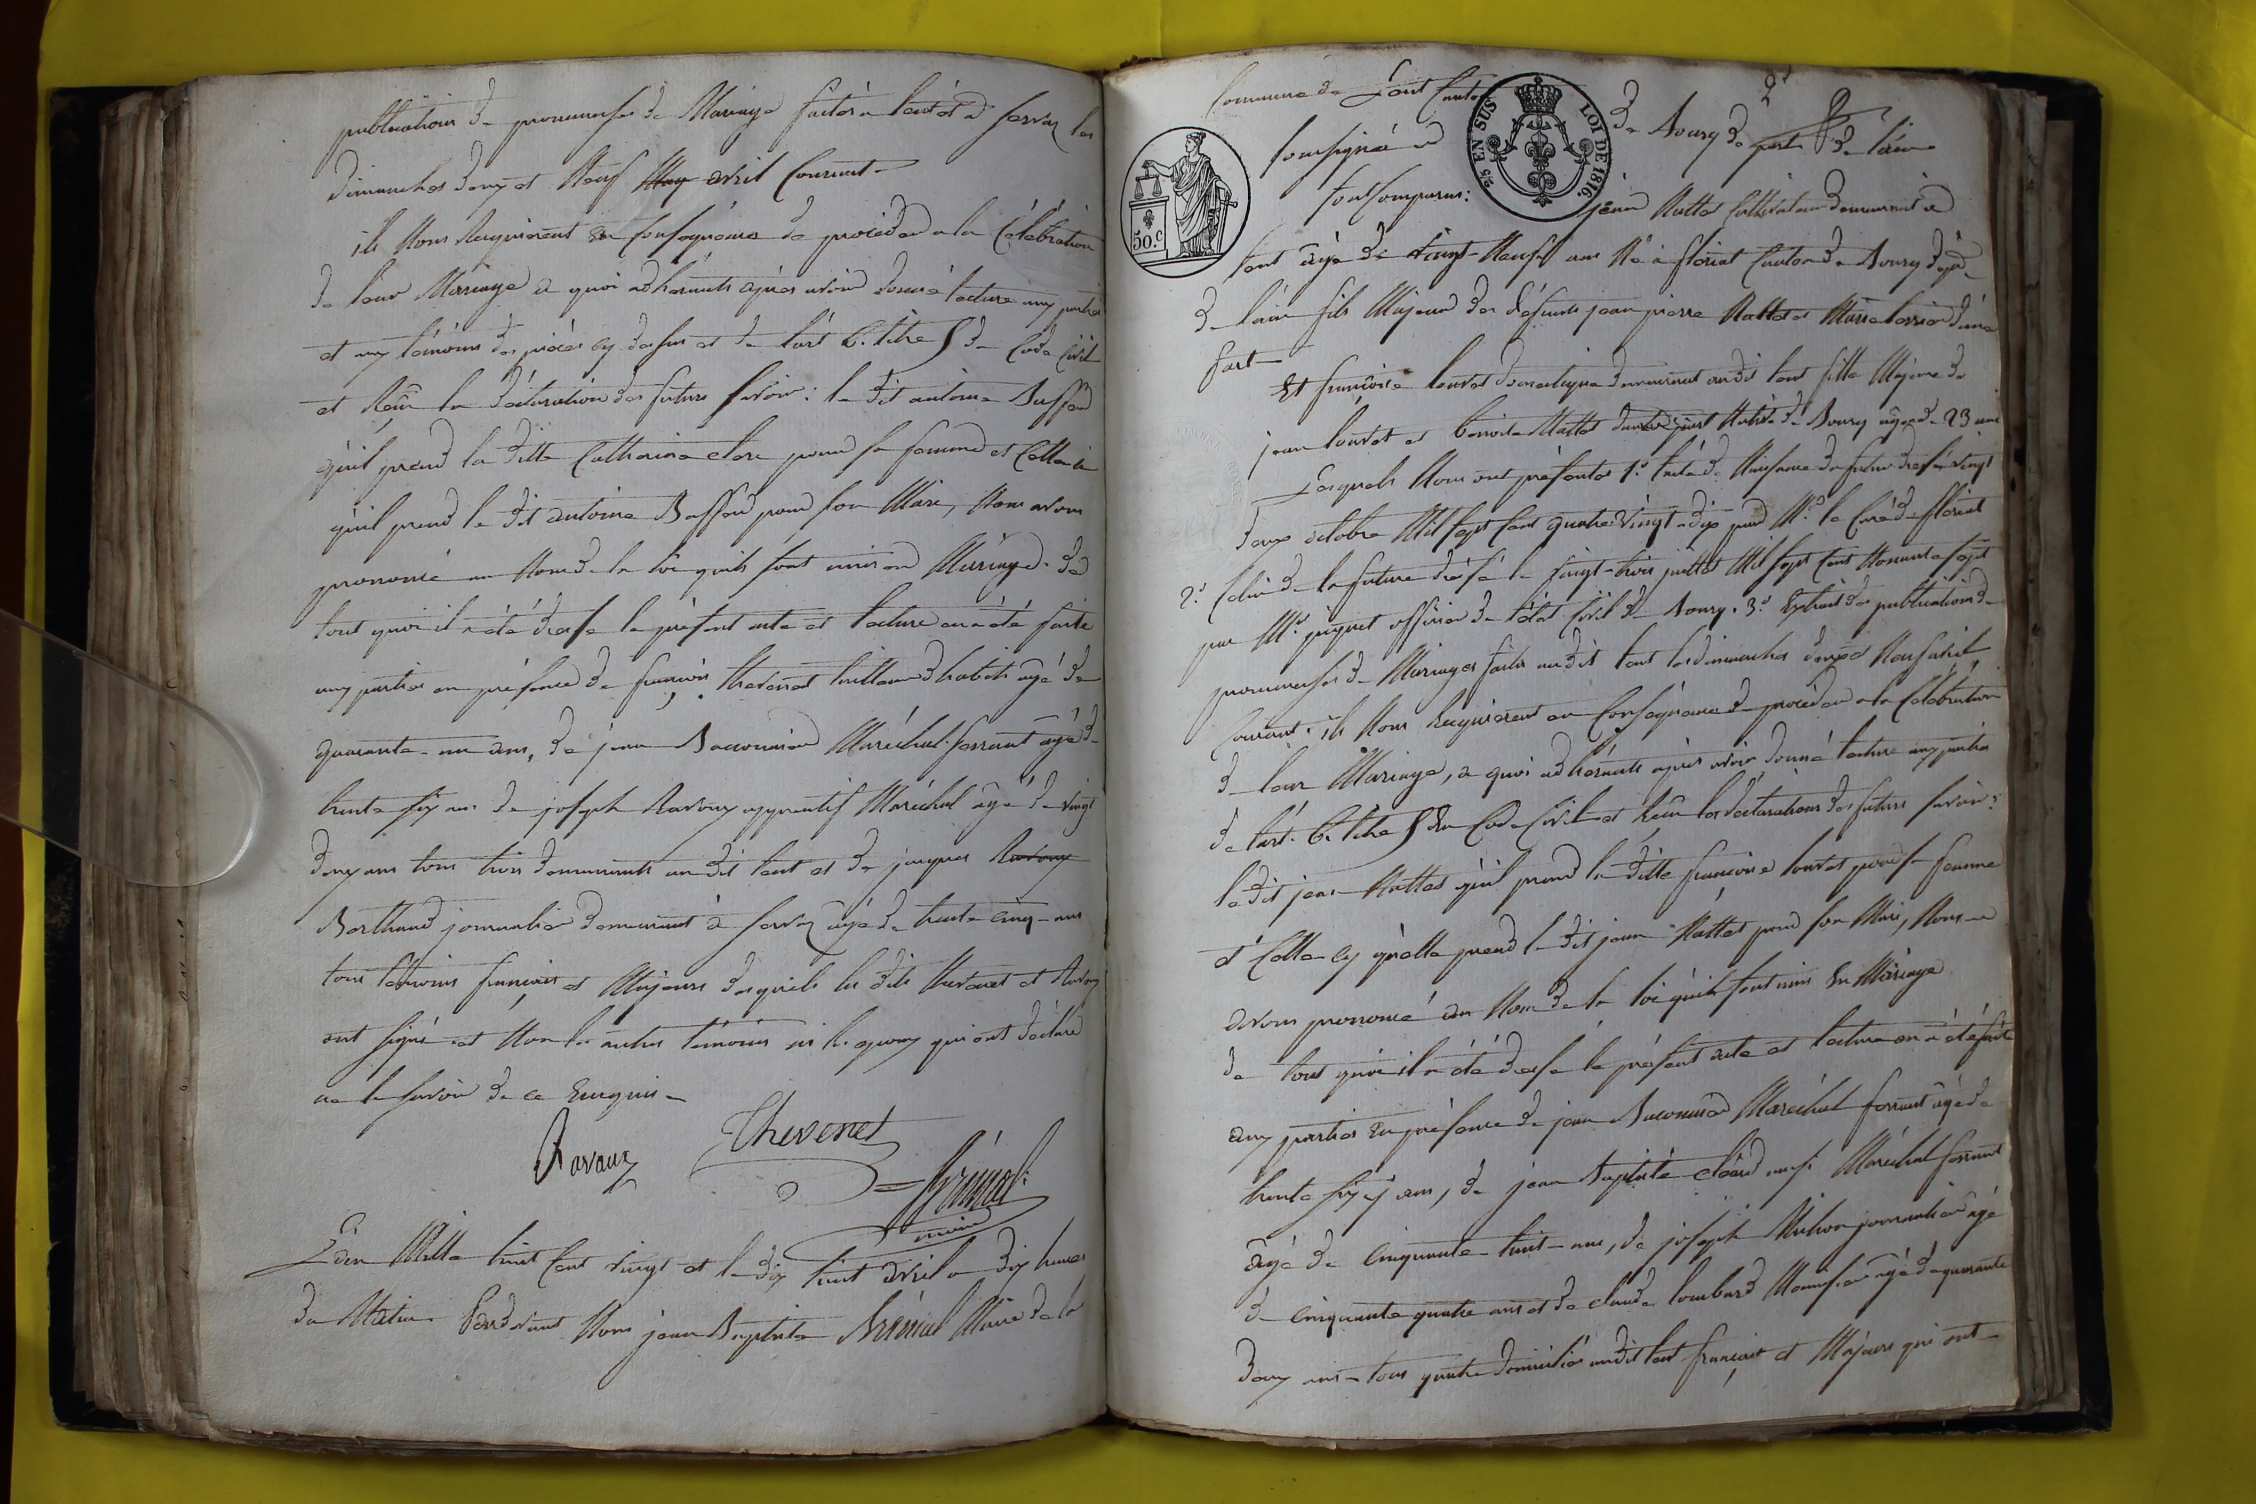 publications de promesses de Mariage faites a lent et a servaz les
dimanches deux et Neuf May avril Courant
ils Nous Requierent En Consequence de proceder a la Célébration
de leur Mariage a quoi adhérants après avoir donné lecture aux parties
et aux témoins des pièces cy dessus et de l'art 6. titre 5 du Code Civil
et Reçu la déclaration des futurs savoir: le dit antoine Buffard
qu'il prend la ditte Catherine clere pour sa femme et Celle ci
qu'il prend le dit antoine Buffard pour son Mari, Nous avons
prononcé au Nom de la loi qu'ils sont unis en Mariage. De
tout quoi il a été dressé le présent acte et lecture en a été faite
aux parties en présence de françois thevenet tailleur d'habits agé de
quarante un ans, de jean Maréchal ferrant agé de
trente six ans de joseph Ravoux apprentif Maréchal agé de vingt
deux ans tous trois demeurants au dit lent et de jacques Ravoux
Berthaud journalier demeurant à servaz agé de trente cinq ans
tous témoins français et Majeurs desquels les dits thevenet et Ravoux
ont signé et Non les autres témoins ni les époux qui ont déclaré
ne le savoir de ce Enquis
Ravaux Thevenet
maire
L'an Mille huit Cent vingt et le dix huit avril a dix heures
du Matin Pardevant Nous jean Baptiste Maire de la
2d
Commune de Lent Canton de Bourg dept de l'ain
soussigné
sont Comparus: jean Nattet Cultivateur demeurant a
lent agé de vingt-Neuf ans Né à fleriat Canton de Bourg dept
de l'ain fils Majeur des défunts jean pierre Nattet et Marie
part
Et françoise louvet domestique demeurant au dit lent fille Majeure de
jean louvet et benoite Nattet Native de Bourg agée de 23 ans
Lesquels Nous ont présentés 1.º l'acte de Naissance du futur dressé le vingt
deux octobre Mil sept Cent quatre vingt-dix par Mr. le Curé de fleriat
2.º Celui de la future dressé le vingt-trois juillet Mil sept Cent Nonante sept
par Mr. officier de l'état Civil de Bourg. 3.º Extrait des publications de
promesses de Mariages faites au dit lent les dimanches deux et Neuf avril
Courant. ils Nous Requierent en Conséquence de procéder a la Célébration
de leur Mariage, a quoi adhérants après avoir donné lecture aux parties
de l'art. 6. titre 5 du Code Civil et Reçu les déclarations des futurs savoir:
le dit jean Nattet qu'il prend la ditte françoise louvet pour sa femme
et Celle cy qu'elle prend le dit jean Nattet pour son Mari, Nous
avons prononcé au Nom de la loi qu'ils sont unis En Mariage
de tout quoi il a été dressé le présent acte et lecture en a été faite
aux parties En présence de jean Maréchal ferrant agé de
trente six ans, de jean Baptiste Maréchal ferrant
agé de Cinquante-huit ans, de joseph journalier agé
de Cinquante quatre ans et de claude lombard agé de quarante
deux ans tous quatre domiciliés au dit lent français et Majeurs qui ont
50.C
2/5 EN SUS LOI DE 1816.